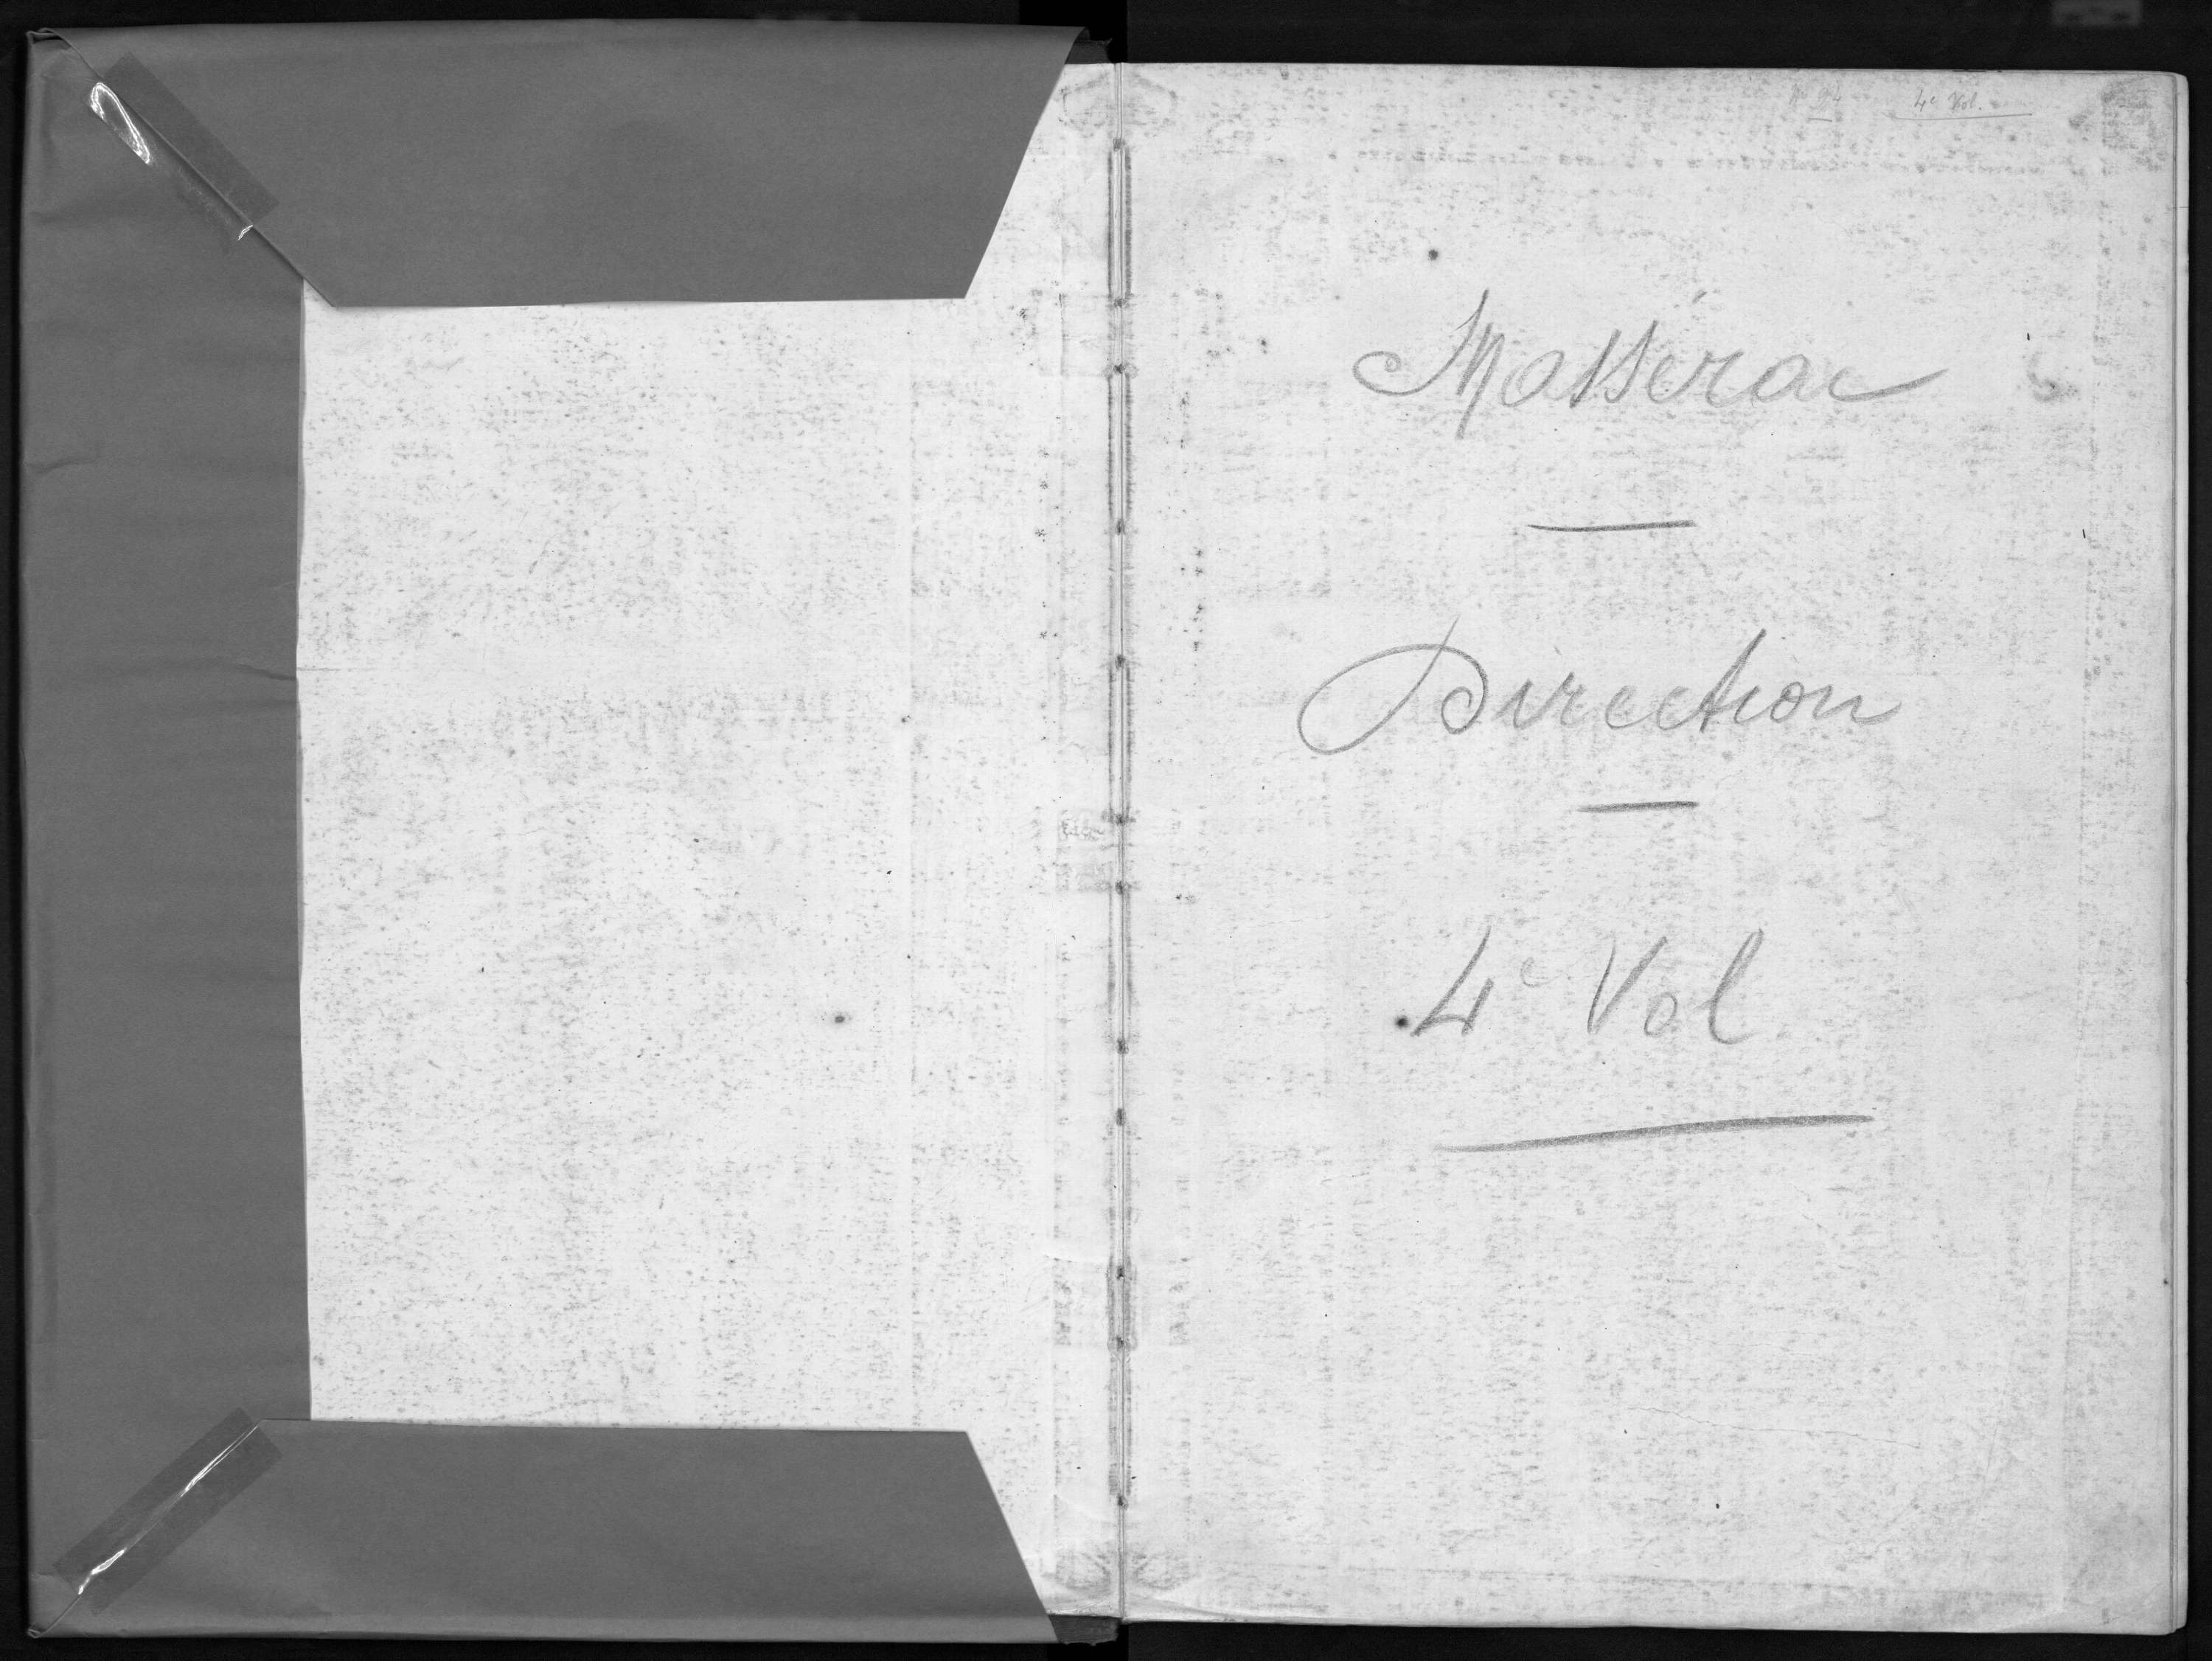 4e Vol.
Massérac
Direction
4e Vol